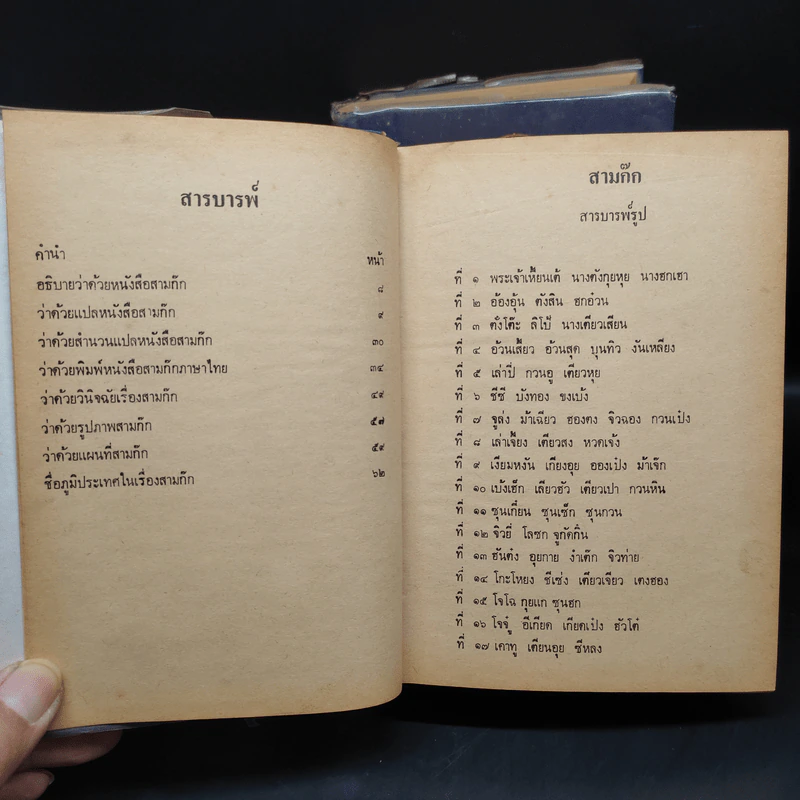 สารบารพ์
คำนำ หน้า
อธิบายว่าด้วยหนังสือสามก๊ก ๘
ว่าด้วยแปลหนังสือสามก๊ก ๙
ว่าด้วยสำนวนแปลหนังสือสามก๊ก ๓๐
ว่าด้วยพิมพ์หนังสือสามก๊กภาษาไทย ๓๔
ว่าด้วยวินิจฉัยเรื่องสามก๊ก ๔๙
ว่าด้วยรูปภาพสามก๊ก ๕๗
ว่าด้วยแผนที่สามก๊ก ๕๙
ชื่อภูมิประเทศในเรื่องสามก๊ก ๖๒
สามก๊ก
สารบารพ์รูป
ที่ ๑ พระเจ้าเหี้ยนเต้ นางตังกุยหุย นางฮกเฮา
ที่ ๒ อ้องอุ้น ตังสิน ฮกอ๋วน
ที่ ๓ ตั๋งโต๊ะ ลิโป้ นางเตียวเสียน
ที่ ๔ อ้วนเสี้ยว อ้วนสุด บุนทิว งันเหลียง
ที่ ๕ เล่าปี่ กวนอู เตียวหุย
ที่ ๖ ชีซี บังทอง ขงเบ้ง
ที่ ๗ จูล่ง ม้าเฉียว ฮองตง จิวฉอง กวนเป๋ง
ที่ ๘ เล่าเจี้ยง เตียวสง หวดเจ้ง
ที่ ๙ เงียมหงัน เกียงอุย อองเป๋ง ม้าเจ๊ก
ที่ ๑๐ เบ้งเฮ็ก เลียวฮัว เตียวเปา กวนหิน
ที่ ๑๑ ซุนเกี๋ยน ซุนเซ็ก ซุนกวน
ที่ ๑๒ จิวยี่ โลซก จูกัดกิ๋น
ที่ ๑๓ ฮันต๋ง อุยกาย งำเต๊ก จิวท่าย
ที่ ๑๔ โกะโหยง ชีเซ่ง เตียวเจียว เตงฮอง
ที่ ๑๕ โจโฉ กุยแก ซุนฮก
ที่ ๑๖ โจจู๋ อีเกียด เกียดเป๋ง ฮัวโต๋
ที่ ๑๗ เคาทู เตียนอุย ซีหลง